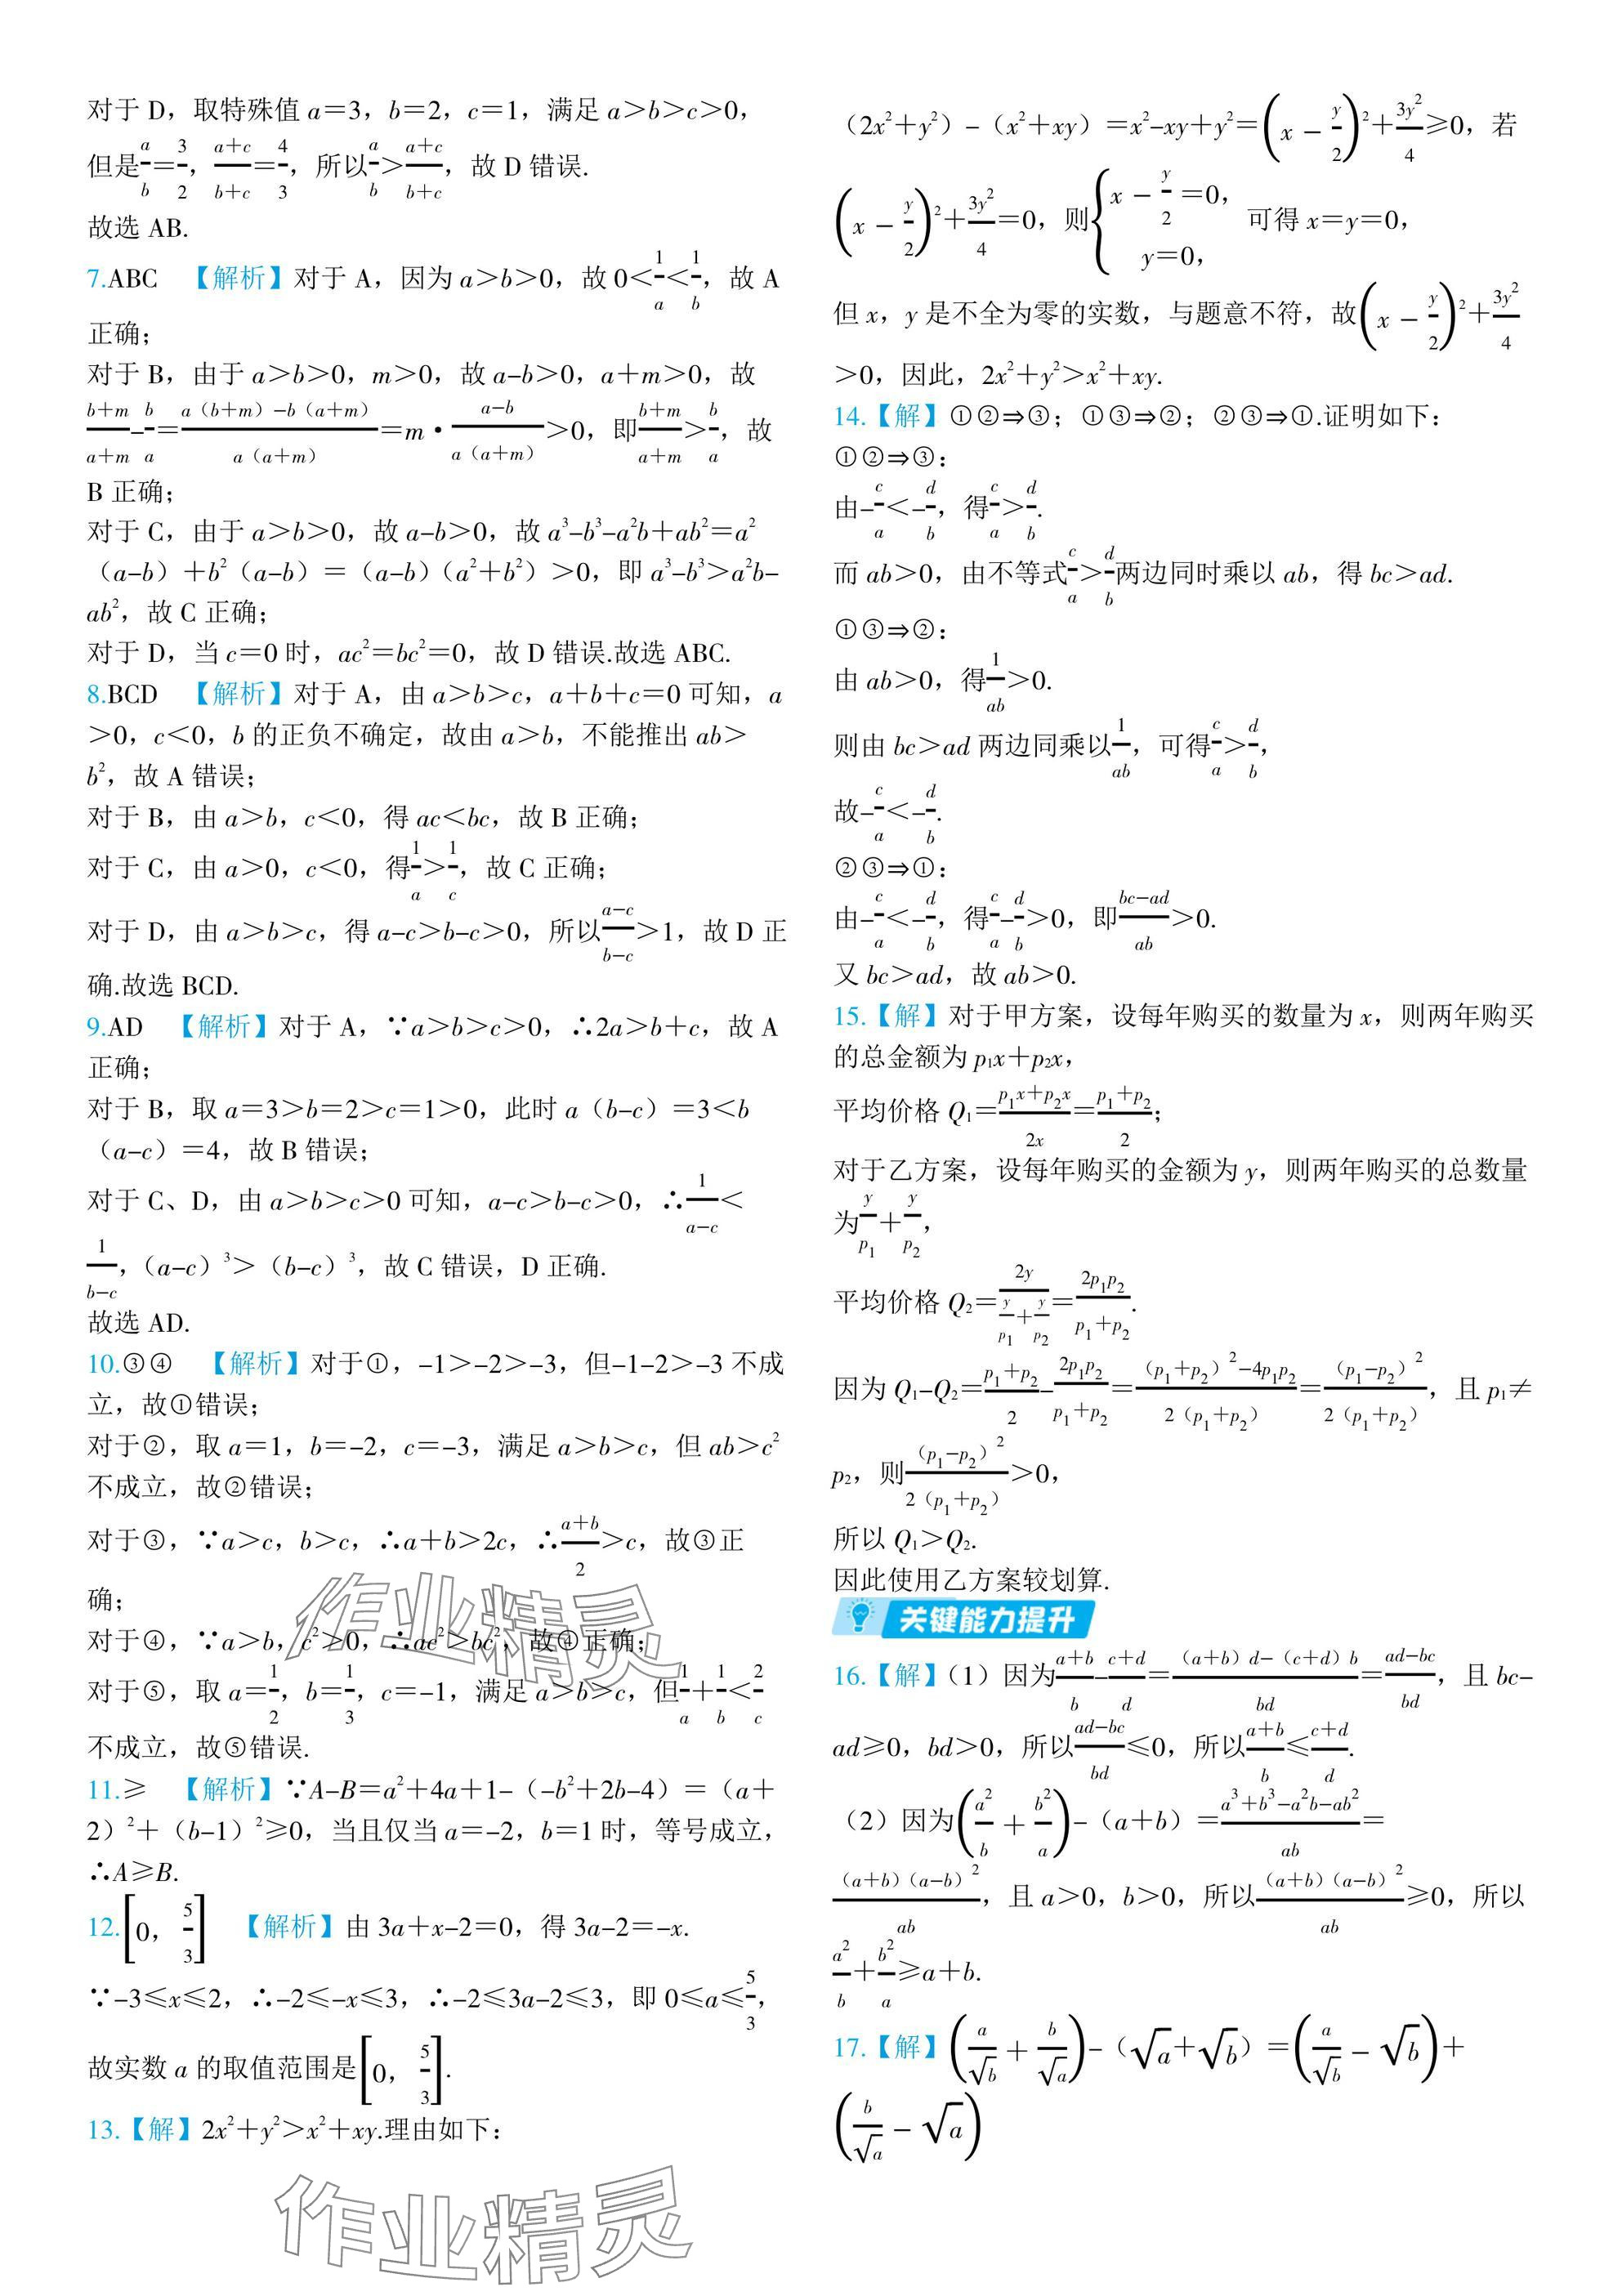 对于 D，取特殊值 a＝3，b＝2，c＝1，满足 a＞b＞c＞0，
但是a/b＝3/2，(a＋c)/(b＋c)＝4/3，所以a/b＞(a＋c)/(b＋c)，故 D 错误.
故选 AB.
7.ABC 【解析】对于 A，因为 a＞b＞0，故 0＜1/a＜1/b，故 A
正确；
对于 B，由于 a＞b＞0，m＞0，故 a–b＞0，a＋m＞0，故
(b＋m)/(a＋m)–b/a＝(a（b＋m）–b（a＋m）)/(a（a＋m）)＝m·(a–b)/(a（a＋m）)＞0，即(b＋m)/(a＋m)＞b/a，故
B 正确；
对于 C，由于 a＞b＞0，故 a–b＞0，故 a³–b³–a²b＋ab²＝a²
（a–b）＋b²（a–b）＝（a–b）（a²＋b²）＞0，即 a³–b³＞a²b–
ab²，故 C 正确；
对于 D，当 c＝0 时，ac²＝bc²＝0，故 D 错误.故选 ABC.
8.BCD 【解析】对于 A，由 a＞b＞c，a＋b＋c＝0 可知，a
＞0，c＜0，b 的正负不确定，故由 a＞b，不能推出 ab＞
b²，故 A 错误；
对于 B，由 a＞b，c＜0，得 ac＜bc，故 B 正确；
对于 C，由 a＞0，c＜0，得1/a＞1/c，故 C 正确；
对于 D，由 a＞b＞c，得 a–c＞b–c＞0，所以(a–c)/(b–c)＞1，故 D 正
确.故选 BCD.
9.AD 【解析】对于 A，∵a＞b＞c＞0，∴2a＞b＋c，故 A
正确；
对于 B，取 a＝3＞b＝2＞c＝1＞0，此时 a（b–c）＝3＜b
（a–c）＝4，故 B 错误；
对于 C、D，由 a＞b＞c＞0 可知，a–c＞b–c＞0，∴1/(a–c)＜
1/(b–c)，（a–c）³＞（b–c）³，故 C 错误，D 正确.
故选 AD.
10.③④ 【解析】对于①，–1＞–2＞–3，但–1–2＞–3 不成
立，故①错误；
对于②，取 a＝1，b＝–2，c＝–3，满足 a＞b＞c，但 ab＞c²
不成立，故②错误；
对于③，∵a＞c，b＞c，∴a＋b＞2c，∴(a＋b)/2＞c，故③正
确；
对于④，∵a＞b，c²＞0，∴ac²＞bc²，故④正确；
对于⑤，取 a＝1/2，b＝1/3，c＝–1，满足 a＞b＞c，但1/a＋1/b＜2/c
不成立，故⑤错误.
11.≥ 【解析】∵A–B＝a²＋4a＋1–（–b²＋2b–4）＝（a＋
2）²＋（b–1）²≥0，当且仅当 a＝–2，b＝1 时，等号成立，
∴A≥B.
12.[0，5/3] 【解析】由 3a＋x–2＝0，得 3a–2＝–x.
∵–3≤x≤2，∴–2≤–x≤3，∴–2≤3a–2≤3，即 0≤a≤5/3，
故实数 a 的取值范围是[0，5/3].
13.【解】2x²＋y²＞x²＋xy.理由如下：
（2x²＋y²）–（x²＋xy）＝x²–xy＋y²＝(x－y/2)²＋3y²/4≥0，若
(x－y/2)²＋3y²/4＝0，则{x－y/2＝0，y＝0，可得 x＝y＝0，
但 x，y 是不全为零的实数，与题意不符，故(x－y/2)²＋3y²/4
＞0，因此，2x²＋y²＞x²＋xy.
14.【解】①②⇒③；①③⇒②；②③⇒①.证明如下：
①②⇒③：
由–c/a＜–d/b，得c/a＞d/b.
而 ab＞0，由不等式c/a＞d/b两边同时乘以 ab，得 bc＞ad.
①③⇒②：
由 ab＞0，得1/ab＞0.
则由 bc＞ad 两边同乘以1/ab，可得c/a＞d/b，
故–c/a＜–d/b.
②③⇒①：
由–c/a＜–d/b，得c/a–d/b＞0，即(bc–ad)/ab＞0.
又 bc＞ad，故 ab＞0.
15.【解】对于甲方案，设每年购买的数量为 x，则两年购买
的总金额为 p₁x＋p₂x，
平均价格 Q₁＝(p₁x＋p₂x)/2x＝(p₁＋p₂)/2；
对于乙方案，设每年购买的金额为 y，则两年购买的总数量
为y/p₁＋y/p₂，
平均价格 Q₂＝2y/(y/p₁＋y/p₂)＝2p₁p₂/(p₁＋p₂).
因为 Q₁–Q₂＝(p₁＋p₂)/2–2p₁p₂/(p₁＋p₂)＝(（p₁＋p₂）²–4p₁p₂)/(2（p₁＋p₂）)＝（p₁–p₂）²/(2（p₁＋p₂）)，且 p₁≠
p₂，则（p₁–p₂）²/(2（p₁＋p₂）)＞0，
所以 Q₁＞Q₂.
因此使用乙方案较划算.
关键能力提升
16.【解】（1）因为(a＋b)/b–(c＋d)/d＝(（a＋b）d–（c＋d）b)/bd＝(ad–bc)/bd，且 bc–
ad≥0，bd＞0，所以(ad–bc)/bd≤0，所以(a＋b)/b≤(c＋d)/d.
（2）因为(a²/b＋b²/a)–（a＋b）＝(a³＋b³–a²b–ab²)/ab＝
（a＋b）（a–b）²/ab，且 a＞0，b＞0，所以（a＋b）（a–b）²/ab≥0，所以
a²/b＋b²/a≥a＋b.
17.【解】(a/√b＋b/√a)–（√a＋√b）＝(a/√b－√b)＋
(b/√a－√a)
作业精灵
作业精灵